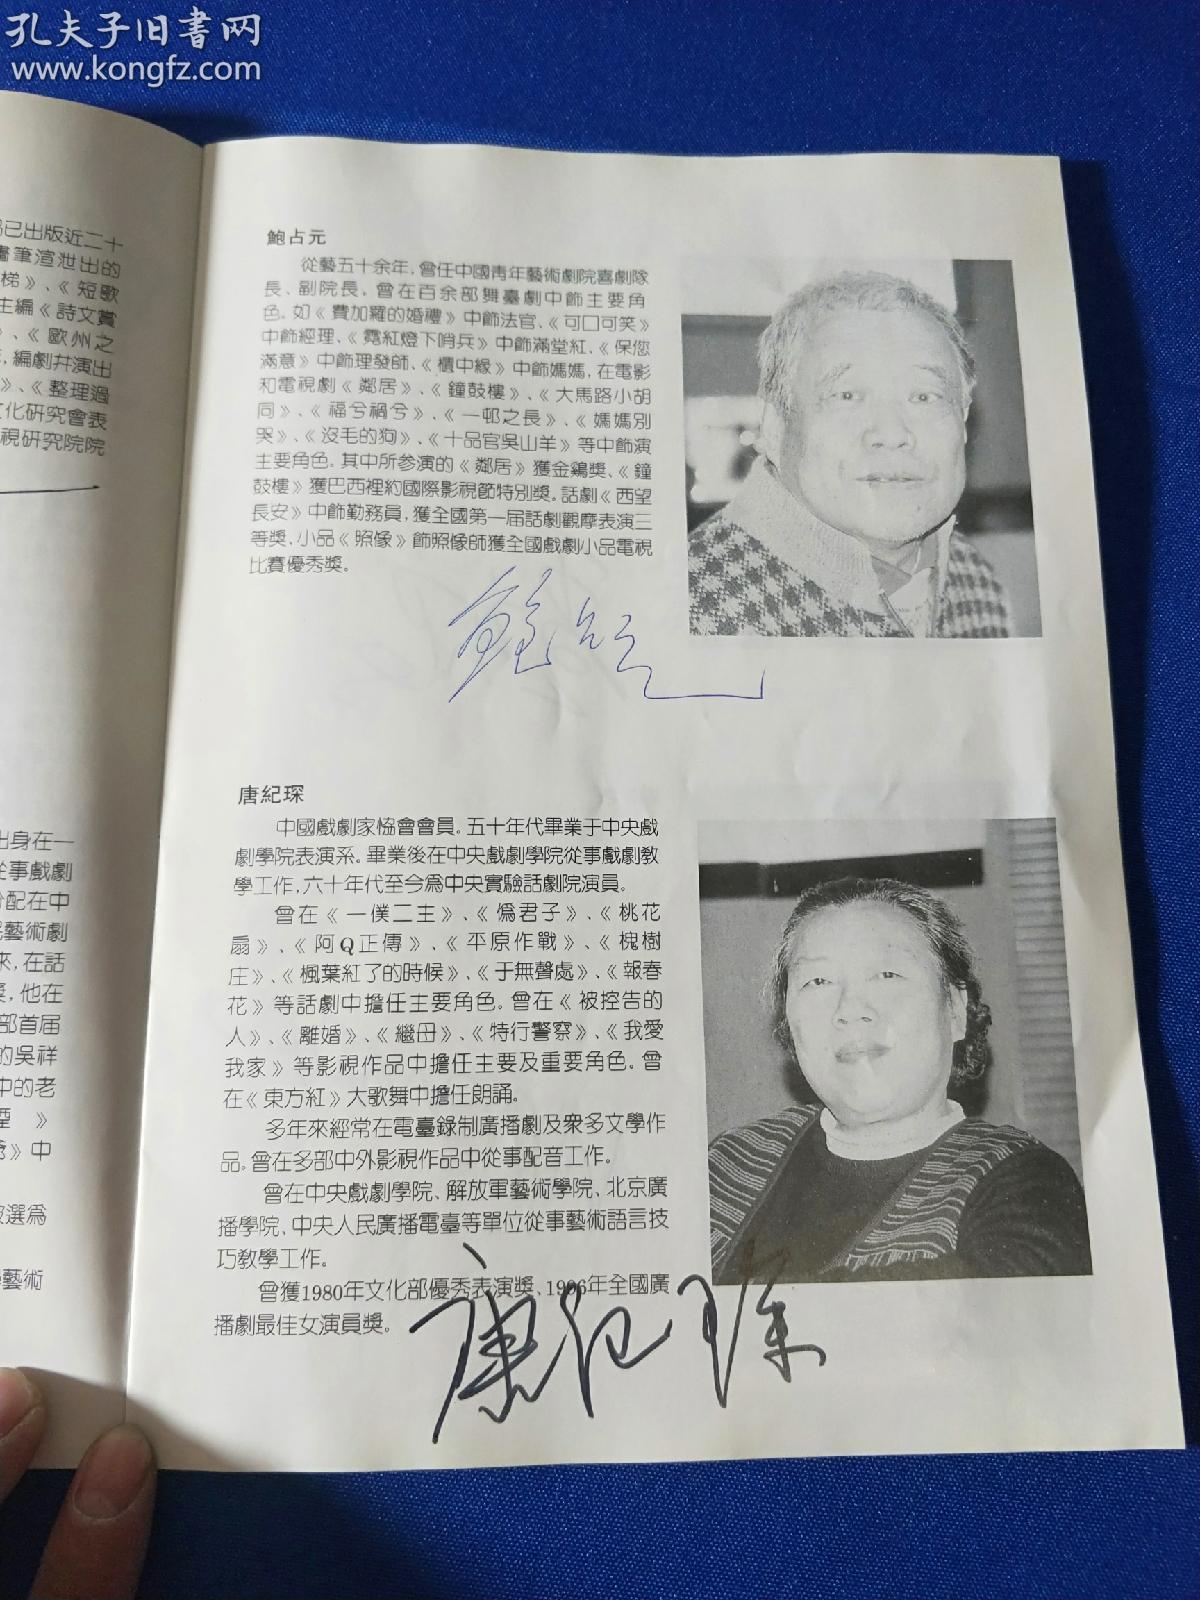 孔夫子旧书网
www.kongfz.com
已出版近二十
畫筆渲泄出的
梯》、《短歌
主編《詩文賞
》、《歐州之
,編劇幷演出
》、《整理過
文化研究會表
視研究院院
出身在一
從事戲劇
分配在中
民藝術劇
來,在話
獎,他在
部首届
的吳祥
中的老
》
》中
被選爲
藝術
鮑占元
從藝五十余年,曾任中國青年藝術劇院喜劇隊
長、副院長,曾在百余部舞臺劇中飾主要角
色。如《費加羅的婚禮》中飾法官、《可口可笑》
中飾經理、《霓紅燈下哨兵》中飾滿堂紅、《保您
滿意》中飾理發師、《櫃中緣》中飾媽媽,在電影
和電視劇《鄰居》、《鐘鼓樓》、《大馬路小胡
同》、《福兮禍兮》、《一邨之長》、《媽媽別
哭》、《沒毛的狗》、《十品官吳山羊》等中飾演
主要角色。其中所參演的《鄰居》獲金鷄獎、《鐘
鼓樓》獲巴西裡約國際影視節特別獎。話劇《西望
長安》中飾勤務員,獲全國第一届話劇觀摩表演三
等獎,小品《照像》飾照像師獲全國戲劇小品電視
比賽優秀獎。
鮑占元
唐紀琛
中國戲劇家協會會員。五十年代畢業于中央戲
劇學院表演系。畢業後在中央戲劇學院從事戲劇教
學工作,六十年代至今爲中央實驗話劇院演員。
曾在《一僕二主》、《僞君子》、《桃花
扇》、《阿Q正傳》、《平原作戰》、《槐樹
庄》、《楓葉紅了的時候》、《于無聲處》、《報春
花》等話劇中擔任主要角色。曾在《被控告的
人》、《離婚》、《繼母》、《特行警察》、《我愛
我家》等影視作品中擔任主要及重要角色。曾
在《東方紅》大歌舞中擔任朗誦。
多年來經常在電臺錄制廣播劇及衆多文學作
品。曾在多部中外影視作品中從事配音工作。
曾在中央戲劇學院、解放軍藝術學院、北京廣
播學院、中央人民廣播電臺等單位從事藝術語言技
巧教學工作。
曾獲1980年文化部優秀表演獎、1996年全國廣
播劇最佳女演員獎。
唐紀琛